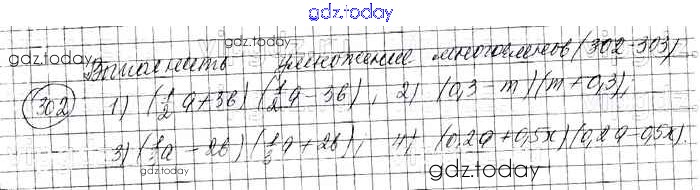 gdz.today
gdz.today
gdz.today
Выполнить умножение многочленов (302-303)
302 1) (1/2 a+3b)(1/2 a-3b), 2) (0,3-m)(m+0,3);
3) (1/3 a-2b)(1/3 a+2b), 4) (0,2a+0,5x)(0,2a-0,5x).
gdz.today
gdz.today